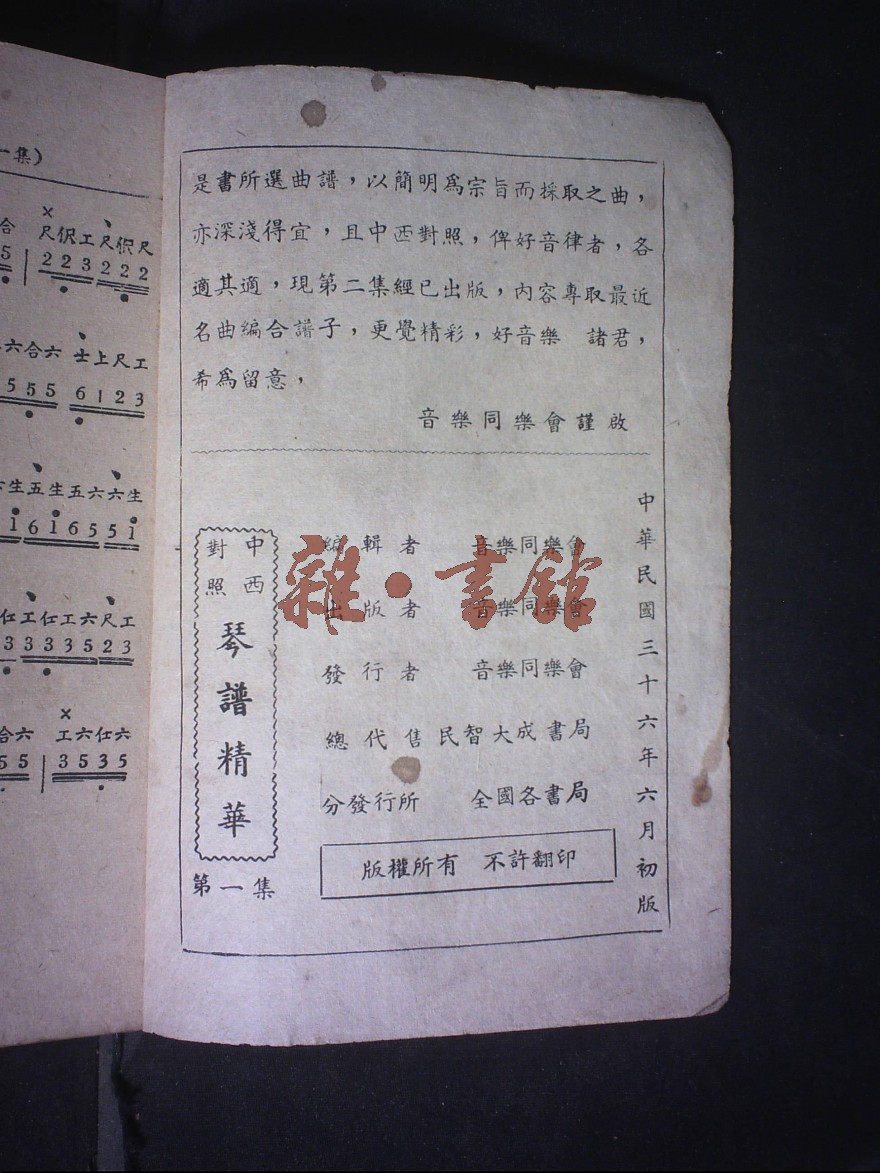 一集)
合 尺伬工尺伬尺
5 2 2 3 2 2 2
六合六 士上尺工
5 5 5 6 1 2 3
生五生五六六生
1 6 1 6 5 5 1
仩工仩工六尺工
3 3 3 3 5 2 3
合六 工六仩六
5 5 3 5 3 5
是書所選曲譜，以簡明爲宗旨而採取之曲，
亦深淺得宜，且中西對照，俾好音律者，各
適其適，現第二集經已出版，內容專取最近
名曲編合譜子，更覺精彩，好音樂 諸君，
希爲留意，
音樂同樂會謹啟
中華民國三十六年六月初版
編輯者 音樂同樂會
出版者 音樂同樂會
發行者 音樂同樂會
總代售 民智大成書局
分發行所 全國各書局
版權所有 不許翻印
中西對照
琴譜精華
第一集
雜·書館